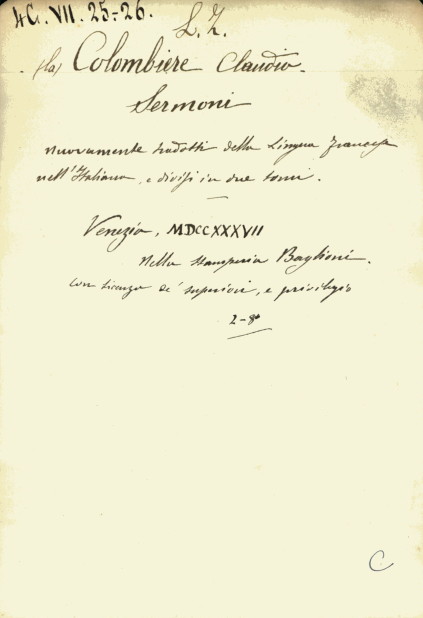 4G. VII. 25-26.
L. Z.
(la) Colombiere Claudio.
Sermoni
nuovamente tradotti della Lingua francese
nell'Italiana, e divisi in due tomi.
Venezia, MDCCXXXVII
Nella stamperia Baglioni.
con licenza de' superiori, e privilegio
2-8°
C